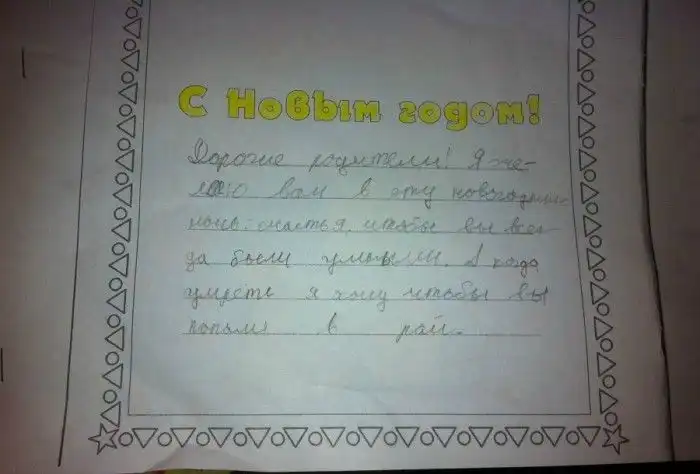 С Новым годом!
Дорогие родители! Я же-
лаю вам в эту новогоднюю
ночь: счастья, чтобы вы всег
да были умными. А когда
умрёте я хочу чтобы вы
попали в рай.